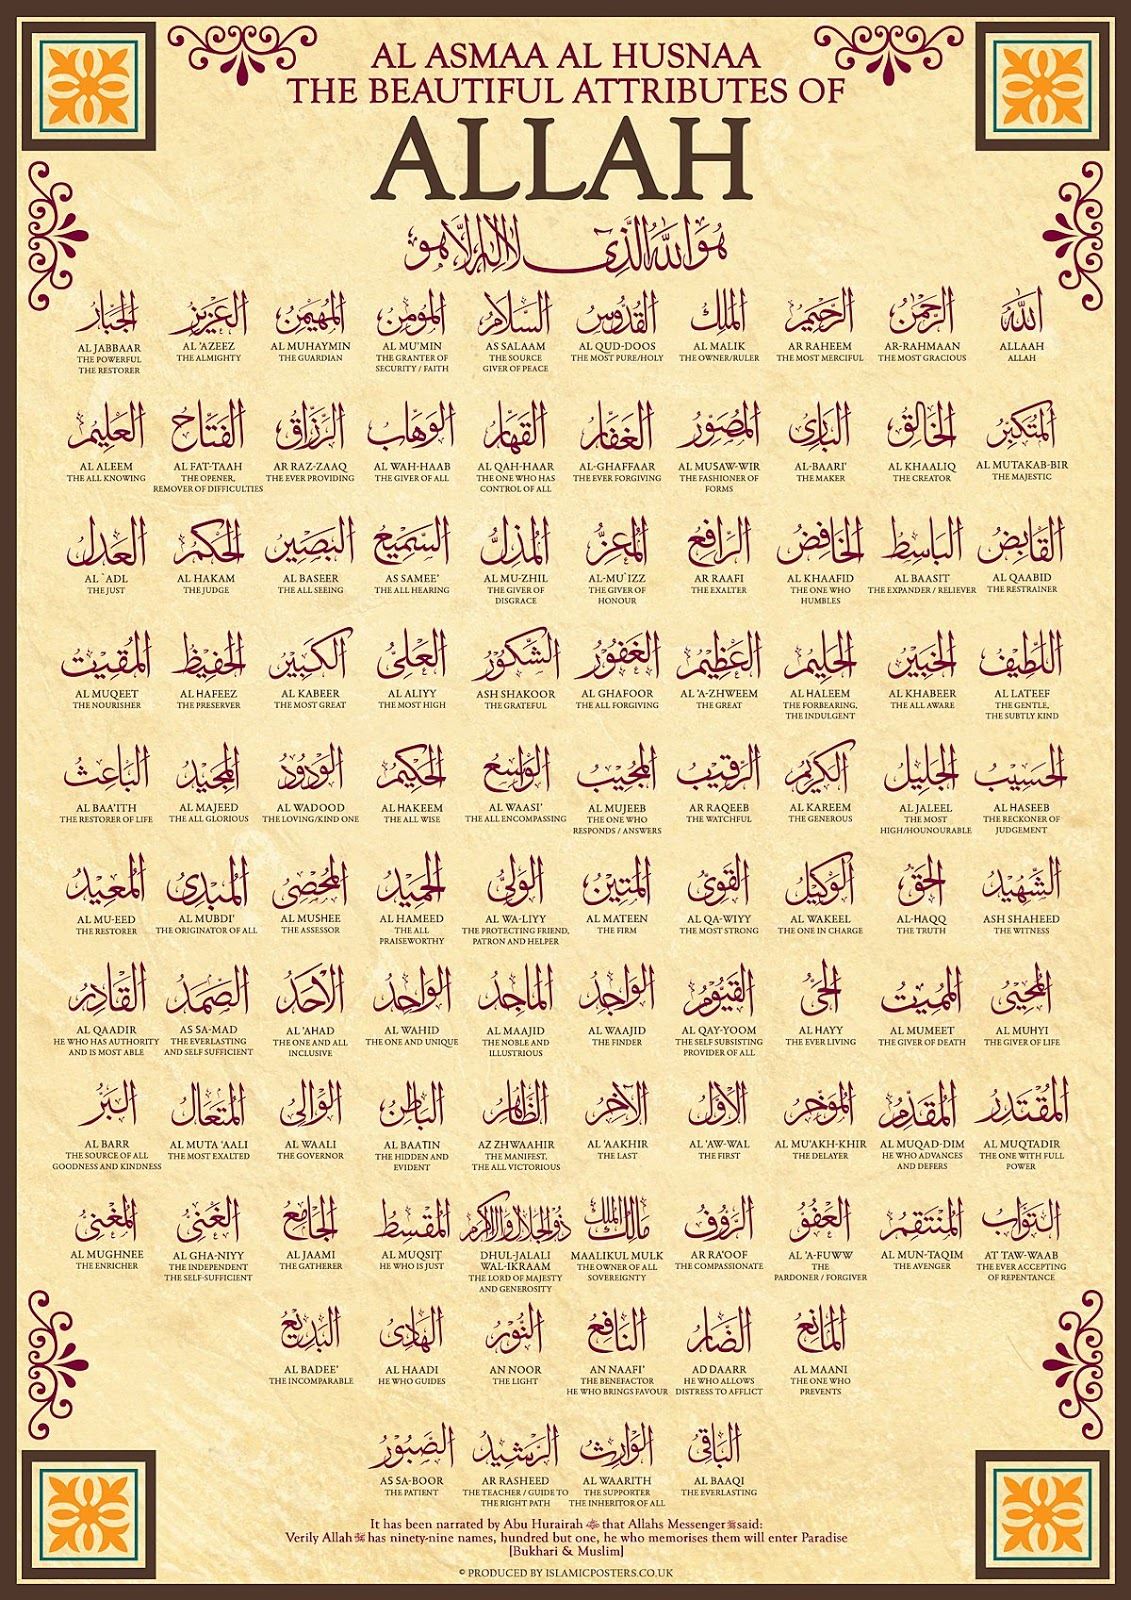 AL ASMAA AL HUSNAA
THE BEAUTIFUL ATTRIBUTES OF
ALLAH
هُوَ اللهُ الَّذِي لَا إِلٰهَ إِلَّا هُوَ
الله
ALLAAH
ALLAH
الرحمن
AR-RAHMAAN
THE MOST GRACIOUS
الرحيم
AR RAHEEM
THE MOST MERCIFUL
الملك
AL MALIK
THE OWNER/RULER
القدوس
AL QUD-DOOS
THE MOST PURE/HOLY
السلام
AS SALAAM
THE SOURCE
GIVER OF PEACE
المؤمن
AL MU'MIN
THE GRANTER OF
SECURITY / FAITH
المهيمن
AL MUHAYMIN
THE GUARDIAN
العزيز
AL 'AZEEZ
THE ALMIGHTY
الجبار
AL JABBAAR
THE POWERFUL
THE RESTORER
المتكبر
AL MUTAKAB-BIR
THE MAJESTIC
الخالق
AL KHAALIQ
THE CREATOR
البارئ
AL-BAARI'
THE MAKER
المصور
AL MUSAW-WIR
THE FASHIONER OF
FORMS
الغفار
AL-GHAFFAAR
THE EVER FORGIVING
القهار
AL QAH-HAAR
THE ONE WHO HAS
CONTROL OF ALL
الوهاب
AL WAH-HAAB
THE GIVER OF ALL
الرزاق
AR RAZ-ZAAQ
THE EVER PROVIDING
الفتاح
AL FAT-TAAH
THE OPENER,
REMOVER OF DIFFICULTIES
العليم
AL ALEEM
THE ALL KNOWING
القابض
AL QAABID
THE RESTRAINER
الباسط
AL BAASIT
THE EXPANDER / RELIEVER
الخافض
AL KHAAFID
THE ONE WHO
HUMBLES
الرافع
AR RAAFI
THE EXALTER
المعز
AL-MU`IZZ
THE GIVER OF
HONOUR
المذل
AL MU-ZHIL
THE GIVER OF
DISGRACE
السميع
AS SAMEE'
THE ALL HEARING
البصير
AL BASEER
THE ALL SEEING
الحكم
AL HAKAM
THE JUDGE
العدل
AL `ADL
THE JUST
اللطيف
AL LATEEF
THE GENTLE,
THE SUBTLY KIND
الخبير
AL KHABEER
THE ALL AWARE
الحليم
AL HALEEM
THE FORBEARING,
THE INDULGENT
العظيم
AL 'A-ZHWEEM
THE GREAT
الغفور
AL GHAFOOR
THE ALL FORGIVING
الشكور
ASH SHAKOOR
THE GRATEFUL
العلي
AL ALIYY
THE MOST HIGH
الكبير
AL KABEER
THE MOST GREAT
الحفيظ
AL HAFEEZ
THE PRESERVER
المقيت
AL MUQEET
THE NOURISHER
الحسيب
AL HASEEB
THE RECKONER OF
JUDGEMENT
الجليل
AL JALEEL
THE MOST
HIGH/HOUNOURABLE
الكريم
AL KAREEM
THE GENEROUS
الرقيب
AR RAQEEB
THE WATCHFUL
المجيب
AL MUJEEB
THE ONE WHO
RESPONDS / ANSWERS
الواسع
AL WAASI'
THE ALL ENCOMPASSING
الحكيم
AL HAKEEM
THE ALL WISE
الودود
AL WADOOD
THE LOVING/KIND ONE
المجيد
AL MAJEED
THE ALL GLORIOUS
الباعث
AL BAA'ITH
THE RESTORER OF LIFE
الشهيد
ASH SHAHEED
THE WITNESS
الحق
AL-HAQQ
THE TRUTH
الوكيل
AL WAKEEL
THE ONE IN CHARGE
القوي
AL QA-WIYY
THE MOST STRONG
المتين
AL MATEEN
THE FIRM
الولي
AL WA-LIYY
THE PROTECTING FRIEND,
PATRON AND HELPER
الحميد
AL HAMEED
THE ALL
PRAISEWORTHY
المحصي
AL MUSHEE
THE ASSESSOR
المبدئ
AL MUBDI'
THE ORIGINATOR OF ALL
المعيد
AL MU-EED
THE RESTORER
المحيي
AL MUHYI
THE GIVER OF LIFE
المميت
AL MUMEET
THE GIVER OF DEATH
الحي
AL HAYY
THE EVER LIVING
القيوم
AL QAY-YOOM
THE SELF SUBSISTING
PROVIDER OF ALL
الواجد
AL WAAJID
THE FINDER
الماجد
AL MAAJID
THE NOBLE AND
ILLUSTRIOUS
الواحد
AL WAHID
THE ONE AND UNIQUE
الأحد
AL 'AHAD
THE ONE AND ALL
INCLUSIVE
الصمد
AS SA-MAD
THE EVERLASTING
AND SELF SUFFICIENT
القادر
AL QAADIR
HE WHO HAS AUTHORITY
AND IS MOST ABLE
المقتدر
AL MUQTADIR
THE ONE WITH FULL
POWER
المقدم
AL MUQAD-DIM
HE WHO ADVANCES
AND DEFERS
المؤخر
AL MU'AKH-KHIR
THE DELAYER
الأول
AL 'AW-WAL
THE FIRST
الآخر
AL 'AAKHIR
THE LAST
الظاهر
AZ ZHWAAHIR
THE MANIFEST,
THE ALL VICTORIOUS
الباطن
AL BAATIN
THE HIDDEN AND
EVIDENT
الوالي
AL WAALI
THE GOVERNOR
المتعال
AL MUTA 'AALI
THE MOST EXALTED
البر
AL BARR
THE SOURCE OF ALL
GOODNESS AND KINDNESS
التواب
AT TAW-WAAB
THE EVER ACCEPTING
OF REPENTANCE
المنتقم
AL MUN-TAQIM
THE AVENGER
العفو
AL 'A-FUWW
THE
PARDONER / FORGIVER
الرؤوف
AR RA'OOF
THE COMPASSIONATE
مالك الملك
MAALIKUL MULK
THE OWNER OF ALL
SOVEREIGNTY
ذو الجلال والإكرام
DHUL-JALALI
WAL-IKRAAM
THE LORD OF MAJESTY
AND GENEROSITY
المقسط
AL MUQSIT
HE WHO IS JUST
الجامع
AL JAAMI
THE GATHERER
الغني
AL GHA-NIYY
THE INDEPENDENT
THE SELF-SUFFICIENT
المغني
AL MUGHNEE
THE ENRICHER
المانع
AL MAANI
THE ONE WHO
PREVENTS
الضار
AD DAARR
HE WHO ALLOWS
DISTRESS TO AFFLICT
النافع
AN NAAFI'
THE BENEFACTOR
HE WHO BRINGS FAVOUR
النور
AN NOOR
THE LIGHT
الهادي
AL HAADI
HE WHO GUIDES
البديع
AL BADEE'
THE INCOMPARABLE
الباقي
AL BAAQI
THE EVERLASTING
الوارث
AL WAARITH
THE SUPPORTER
THE INHERITOR OF ALL
الرشيد
AR RASHEED
THE TEACHER / GUIDE TO
THE RIGHT PATH
الصبور
AS SA-BOOR
THE PATIENT
It has been narrated by Abu Hurairah that Allahs Messenger ﷺ said:
Verily Allah has ninety-nine names, hundred but one, he who memorises them will enter Paradise
[Bukhari & Muslim]
© PRODUCED BY ISLAMICPOSTERS.CO.UK